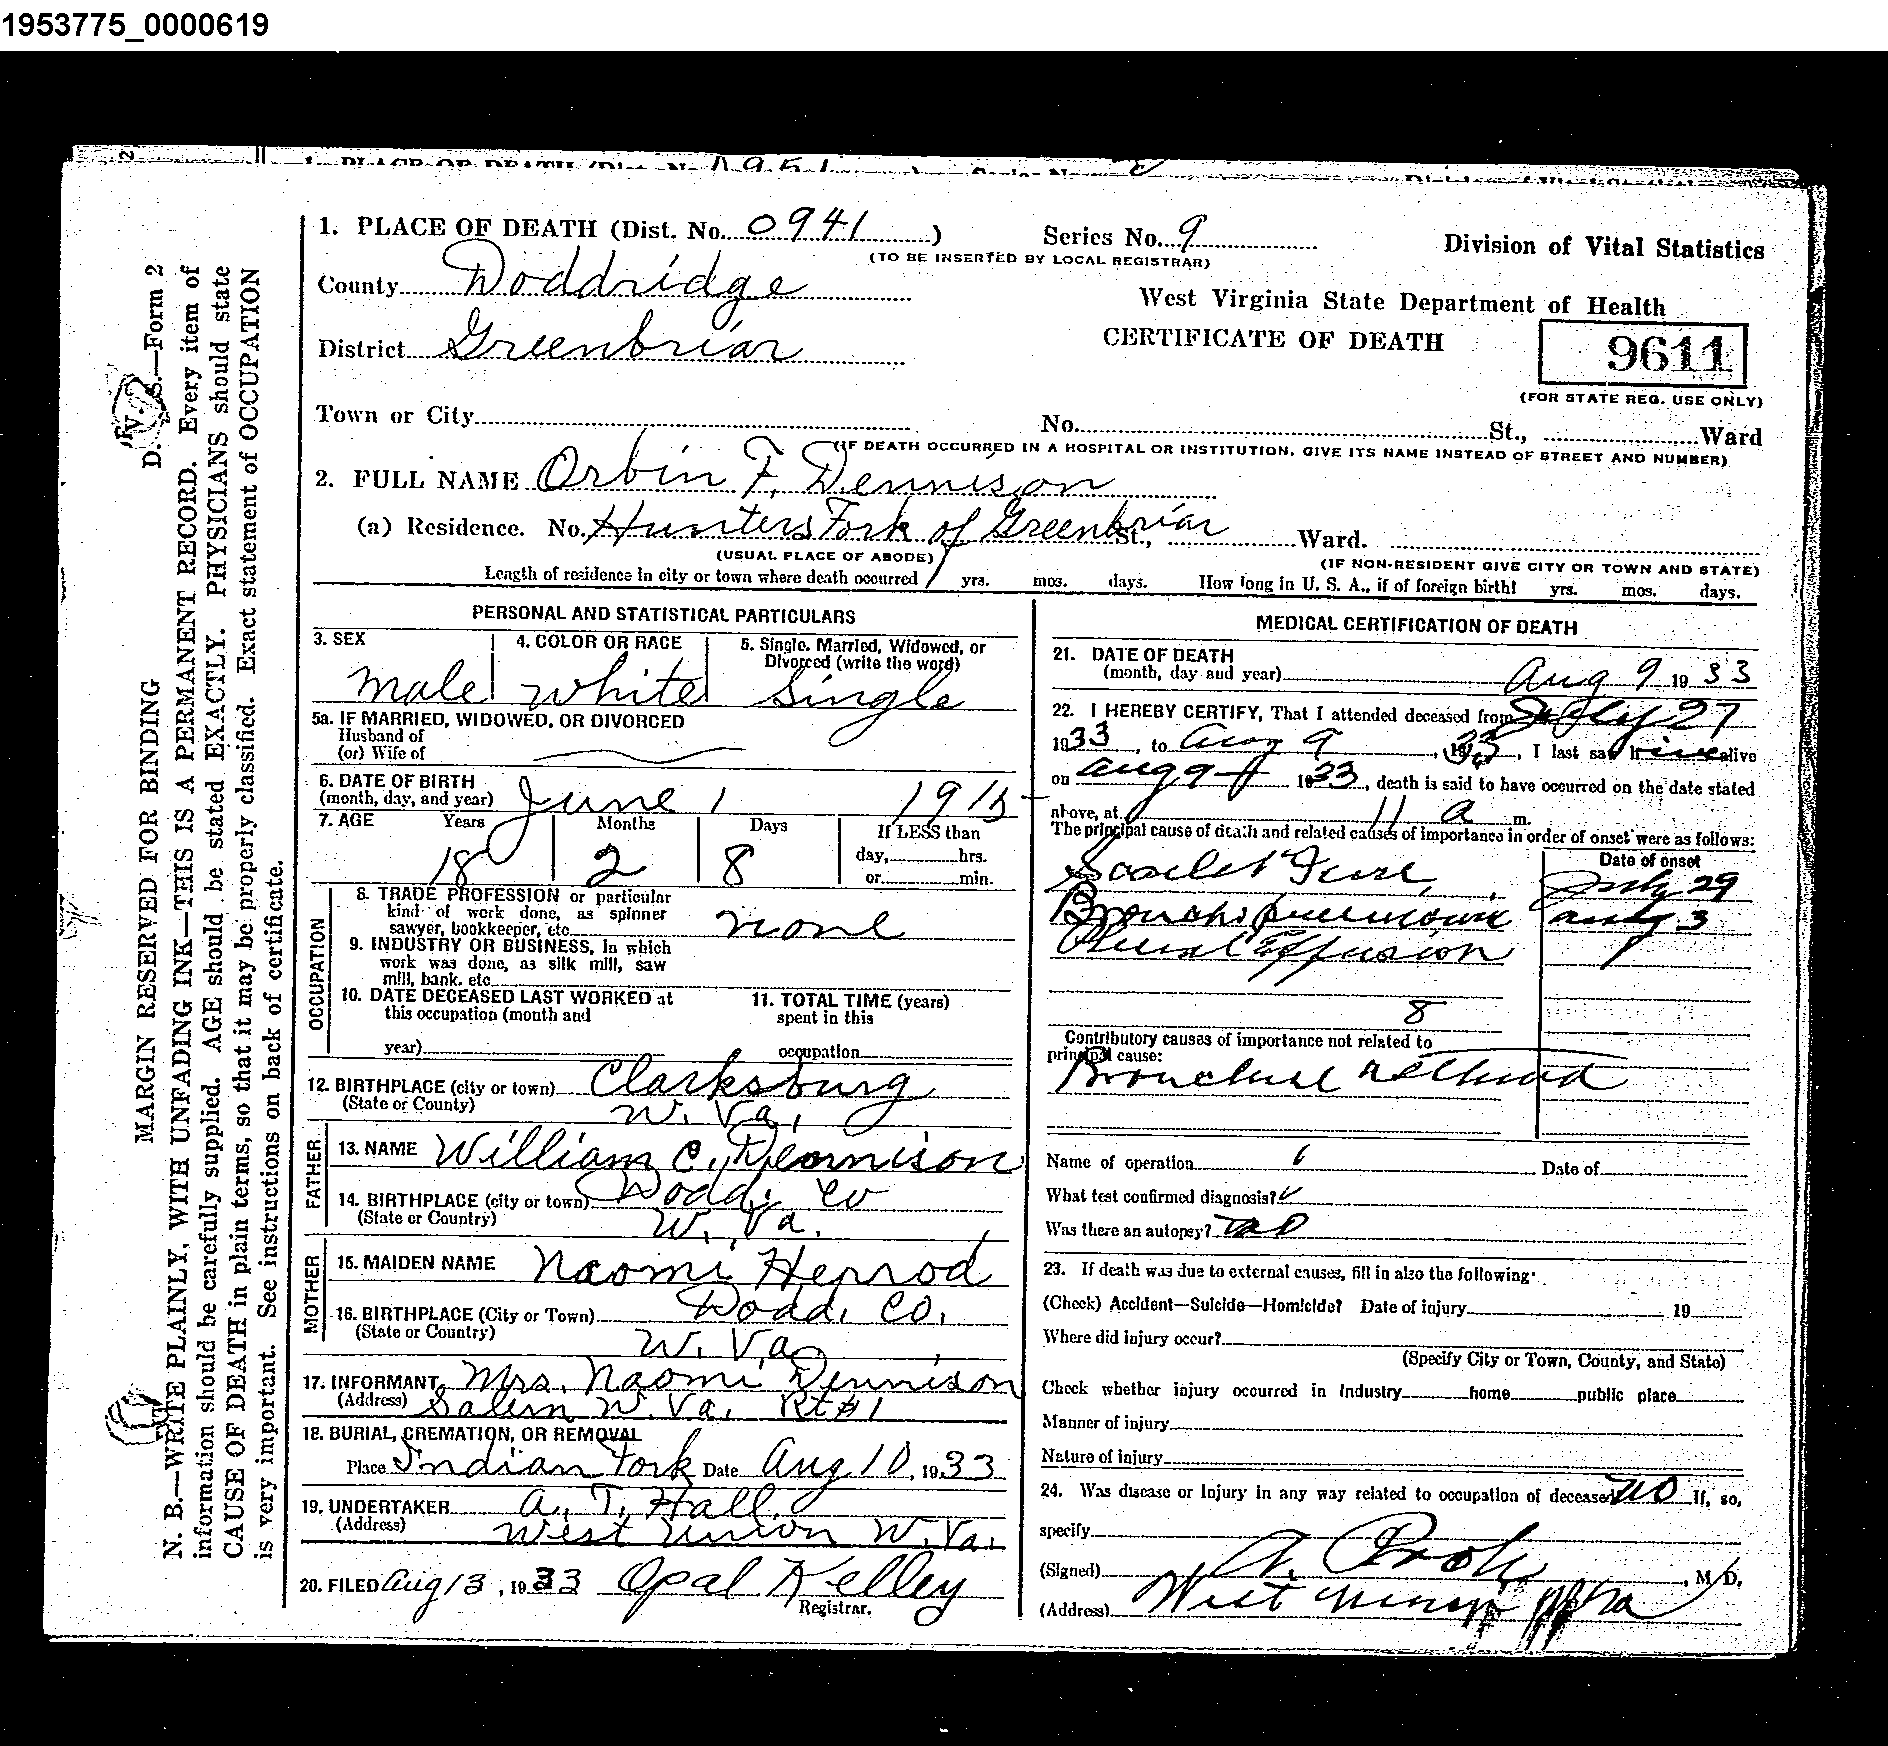 1953775_0000619
1. PLACE OF DEATH (Dist. No. 0941 ) Series No. 9
(TO BE INSERTED BY LOCAL REGISTRAR)
Division of Vital Statistics
County Doddridge
West Virginia State Department of Health
District Greenbriar
CERTIFICATE OF DEATH
9611
(FOR STATE REG. USE ONLY)
Town or City No. St., Ward
(IF DEATH OCCURRED IN A HOSPITAL OR INSTITUTION, GIVE ITS NAME INSTEAD OF STREET AND NUMBER)
2. FULL NAME Orbin F. Dennison
(a) Residence. No. Hunters Fork of Greenbriar St., Ward.
(USUAL PLACE OF ABODE) (IF NON-RESIDENT GIVE CITY OR TOWN AND STATE)
Length of residence in city or town where death occurred yrs. mos. days. How long in U. S. A., if of foreign birth? yrs. mos. days.
PERSONAL AND STATISTICAL PARTICULARS
3. SEX 4. COLOR OR RACE 5. Single, Married, Widowed, or
Divorced (write the word)
Male White Single
5a. IF MARRIED, WIDOWED, OR DIVORCED
Husband of
(or) Wife of
6. DATE OF BIRTH
(month, day, and year) June 1 1915
7. AGE Years Months Days If LESS than
18 2 8 day, hrs.
or min.
OCCUPATION
8. TRADE PROFESSION or particular
kind of work done, as spinner
sawyer, bookkeeper, etc. none
9. INDUSTRY OR BUSINESS, in which
work was done, as silk mill, saw
mill, bank, etc.
10. DATE DECEASED LAST WORKED at
this occupation (month and
year)
11. TOTAL TIME (years)
spent in this
occupation
12. BIRTHPLACE (city or town) Clarksburg
(State or County) W. Va.
FATHER
13. NAME William C. Dennison
14. BIRTHPLACE (city or town) Dodd. Co
(State or Country) W. Va.
MOTHER
15. MAIDEN NAME Naomi Herrod
16. BIRTHPLACE (City or Town) Dodd. Co.
(State or Country) W. Va
17. INFORMANT Mrs. Naomi Dennison
(Address) Salem W. Va. Rt #1
18. BURIAL, CREMATION, OR REMOVAL
Place Indian Fork Date Aug 10, 1933
19. UNDERTAKER A. T. Hall
(Address) West Union W. Va.
20. FILED Aug 13, 1933 Opal Kelley
Registrar.
MEDICAL CERTIFICATION OF DEATH
21. DATE OF DEATH
(month, day and year) Aug 9 1933
22. I HEREBY CERTIFY, That I attended deceased from July 27
1933, to Aug 9, 1933, I last saw h alive
on Aug 9 1933, death is said to have occurred on the date stated
above, at 11 a m.
The principal cause of death and related causes of importance in order of onset were as follows:
Date of onset
Scarlet Fever July 29
Broncho pneumonia Aug 3
Plural Effusion
8
Contributory causes of importance not related to
principal cause:
Bronchial Asthma
Name of operation Date of
What test confirmed diagnosis?
Was there an autopsy? no
23. If death was due to external causes, fill in also the following:
(Check) Accident—Suicide—Homicide? Date of injury 19
Where did injury occur?
(Specify City or Town, County, and State)
Check whether injury occurred in industry home public place
Manner of injury
Nature of injury
24. Was disease or injury in any way related to occupation of deceased no If, so,
specify
(Signed) A. , M. D.
(Address) West Va
D. V. S.—Form 2
MARGIN RESERVED FOR BINDING
N. B.—WRITE PLAINLY, WITH UNFADING INK—THIS IS A PERMANENT RECORD. Every item of
information should be carefully supplied. AGE should be stated EXACTLY. PHYSICIANS should state
CAUSE OF DEATH in plain terms, so that it may be properly classified. Exact statement of OCCUPATION
is very important. See instructions on back of certificate.